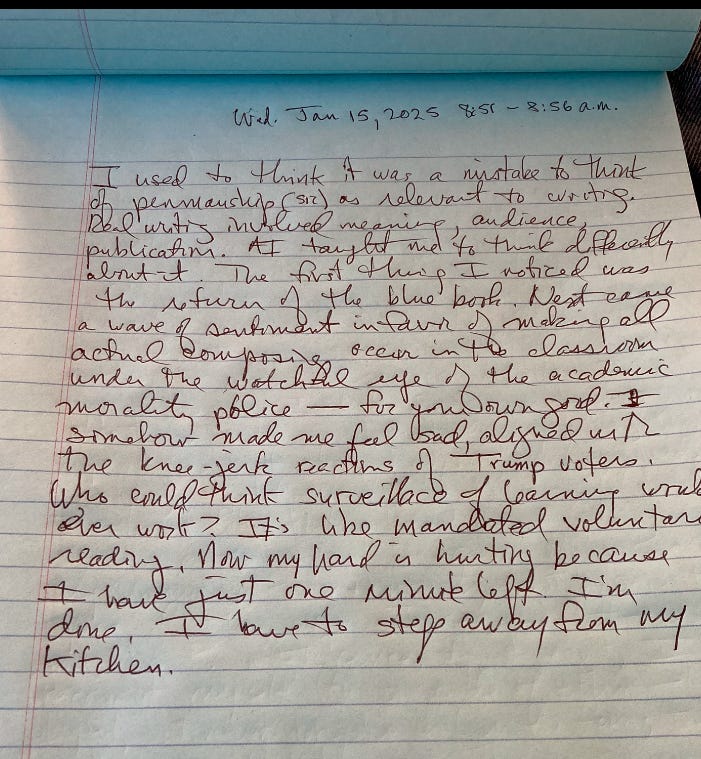 Wed. Jan 15, 2025 8:51 – 8:56 a.m.
I used to think it was a mistake to think
of penmanship (sic) as relevant to writing.
Real writing involved meaning, audience,
publication. AI taught me to think differently
about it. The first thing I noticed was
the return of the blue book. Next came
a wave of sentiment in favor of making all
actual composing occur in the classroom
under the watchful eye of the academic
morality police — for your own good. It
somehow made me feel sad, aligned with
the knee-jerk reactions of Trump voters.
Who could think surveillace of learning would
ever work? It's like mandated voluntary
reading. Now my hand is hurting because
I have just one minute left. I'm
done. I have to step away from my
kitchen.